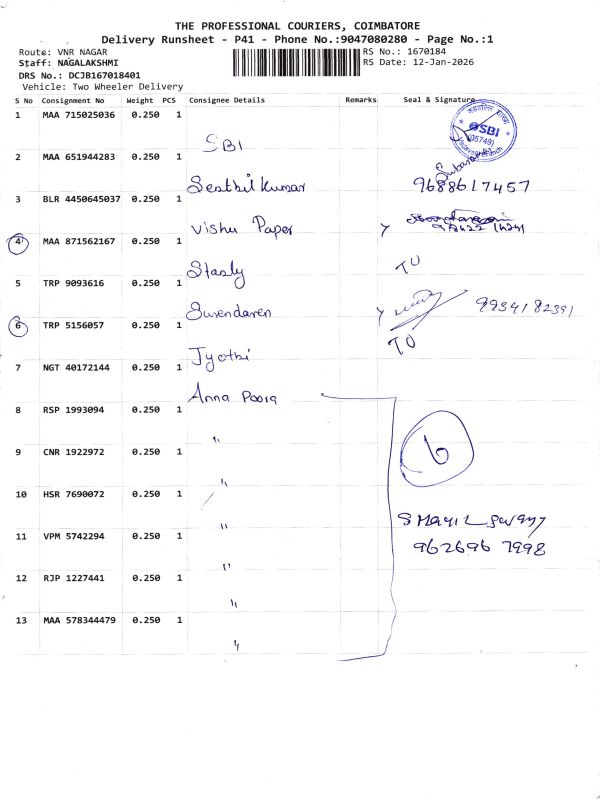 THE PROFESSIONAL COURIERS, COIMBATORE
Delivery Runsheet - P41 - Phone No.:9047080280 - Page No.:1
Route: VNR NAGAR
RS No.: 1670184
Staff: NAGALAKSHMI
RS Date: 12-Jan-2026
DRS No.: DCJB167018401
Vehicle: Two Wheeler Delivery
S No Consignment No Weight PCS Consignee Details Remarks Seal & Signature
1 MAA 715025036 0.250 1
SBI
SBI
(05749)
2 MAA 651944283 0.250 1
Senthil Kumar 9688617457
3 BLR 4450645037 0.250 1
Vishu Paper
4 MAA 871562167 0.250 1
TO
5 TRP 9093616 0.250 1
Surendaren 9934182391
6 TRP 5156057 0.250 1
TO
Jyothi
7 NGT 40172144 0.250 1
Anna Poora
8 RSP 1993094 0.250 1
"
6
9 CNR 1922972 0.250 1
"
10 HSR 7690072 0.250 1
"
11 VPM 5742294 0.250 1
962696 7998
"
12 RJP 1227441 0.250 1
"
13 MAA 578344479 0.250 1
"